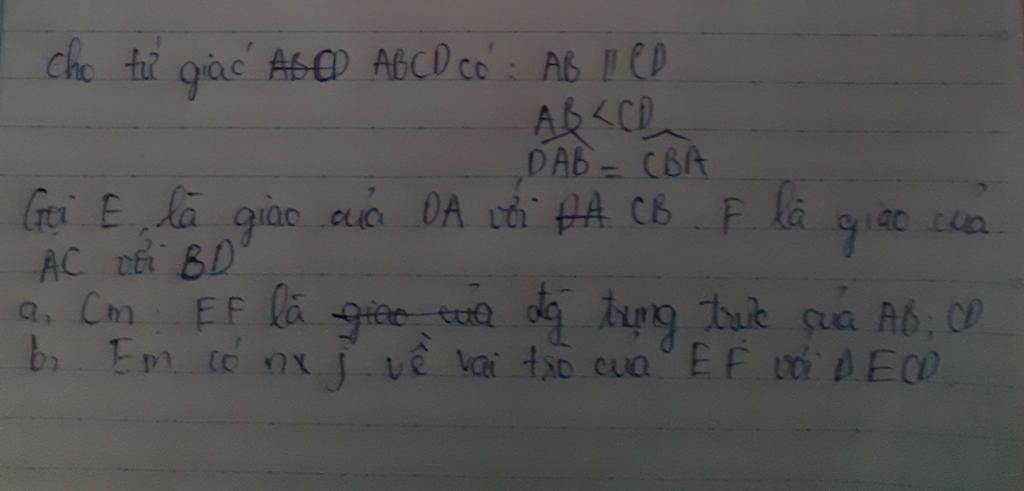 Cho tứ giác ABCD ABCD có: AB // CD
AB < CD
DAB = CBA
Gọi E là giao của DA với DA CB. F là giao của
AC với BD
a, Cm: EF là giao của đg trung trực của AB; CD
b, Em có nx j về vai trò của EF với Δ ECD